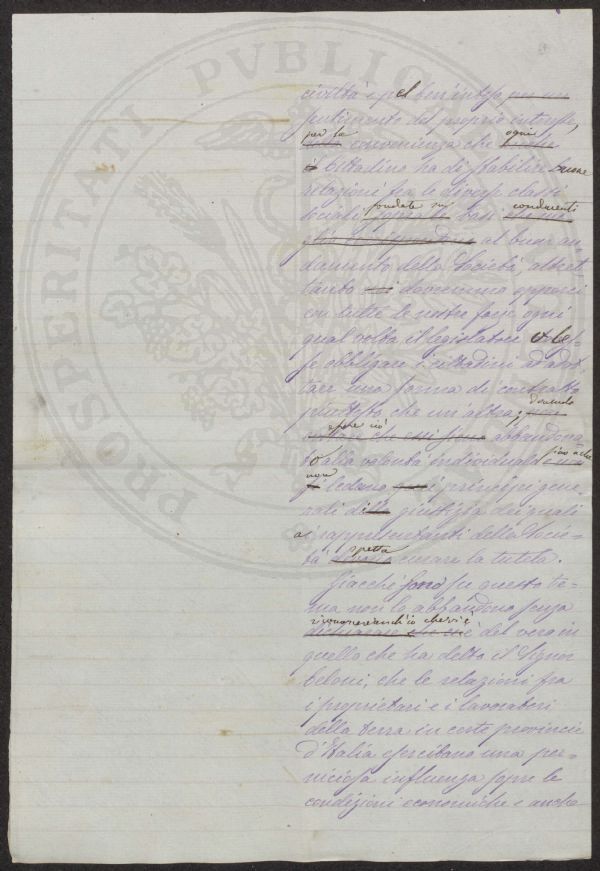 PROSPERITATI PVBLICAE
civiltà e pel ben inteso per un
sentimento del proprio interesse,
per la convenienza che ogni
il cittadino ha di stabilir buone
relazioni fra le diverse classi
sociali fondate su basi conducenti
al buon an-
damento della Società, altret-
tanto dovremmo opporci
con tutte le nostre forze ogni
qual volta il legislatore voles-
se obbligare i cittadini ad adot-
tare una forma di contratto
piuttosto che un'altra; dovendo
essere ciò abbandona-
to alla volontà individuale fino a che
non ledano i principi gene-
rali di giustizia dei quali
ai rappresentanti della Socie-
tà spetta curare la tutela.
Giacchè sono su questo te-
ma non lo abbandono senza
riconoscere anch'io che vi è
del vero in
quello che ha detto il Signor
Celoni, che le relazioni fra
i proprietari e i lavoratori
della terra in certe provincie
d'Italia esercitano una per-
niciosa influenza sopra le
condizioni economiche e anche